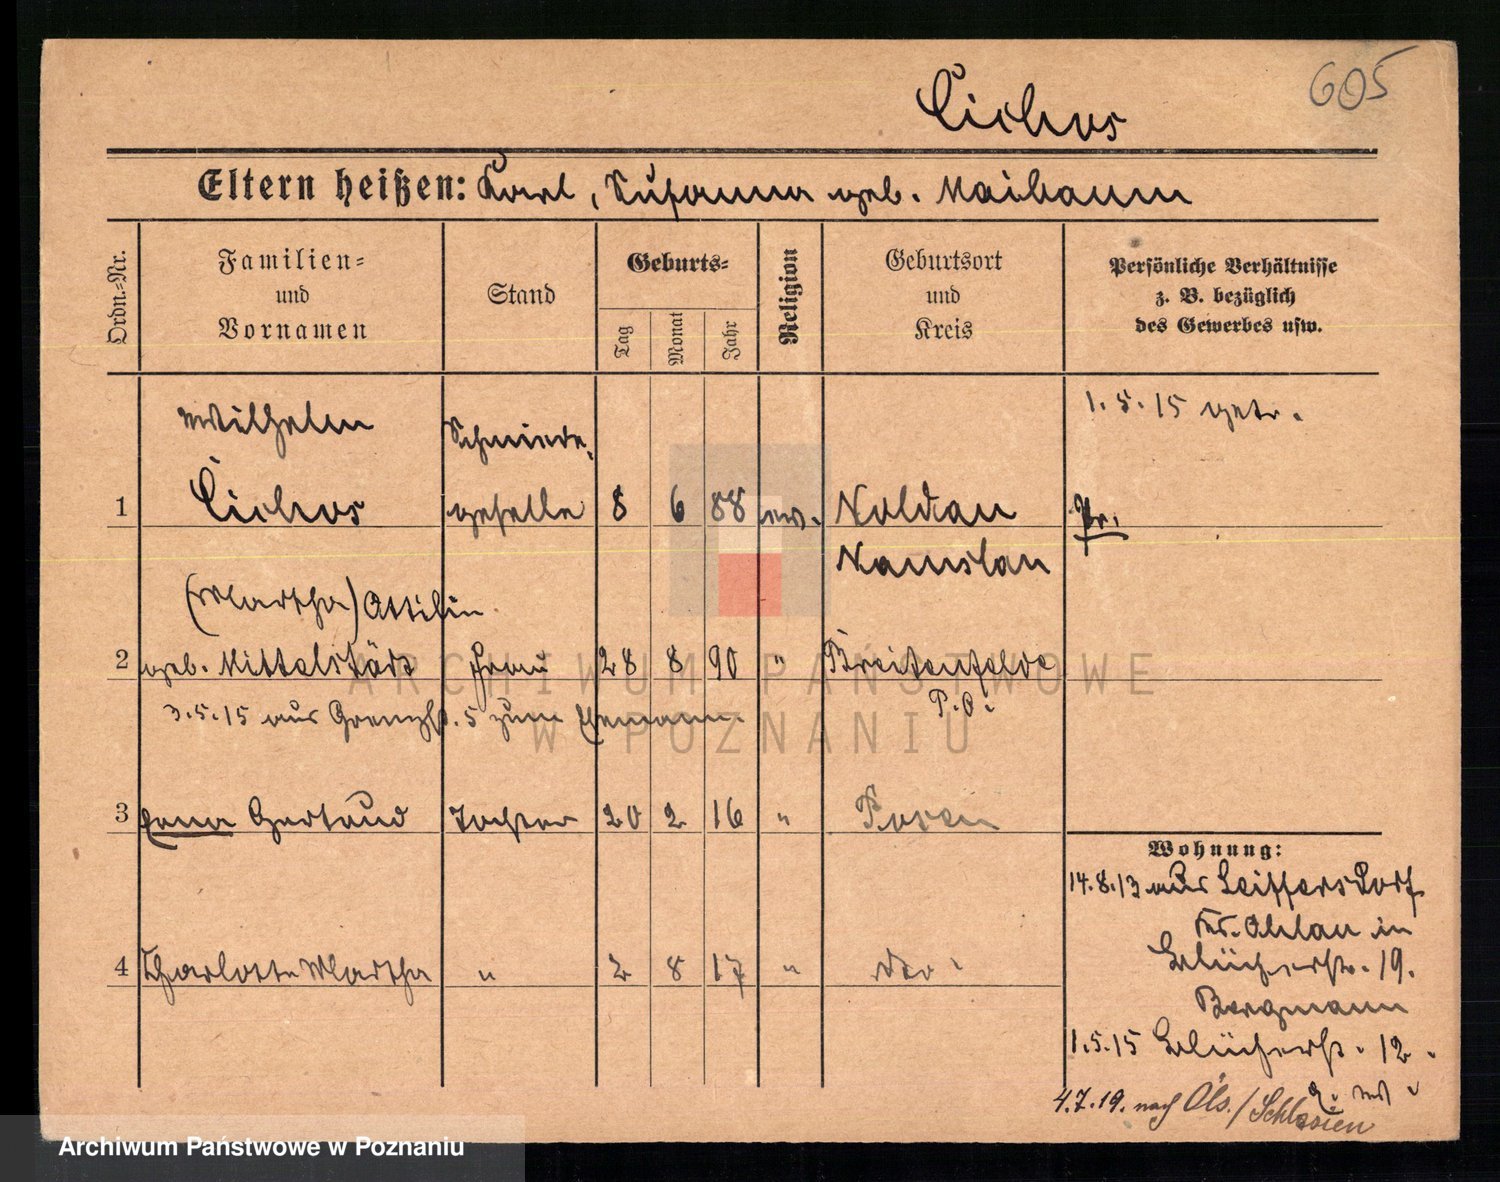 605
Cichos
Eltern heißen: Karl, Susanna geb. Maibaum
Ordn.-Nr.
Familien-
und
Vornamen
Stand
Geburts-
Tag
Monat
Jahr
Religion
Geburtsort
und
Kreis
Persönliche Verhältnisse
z. B. bezüglich
des Gewerbes usw.
Wilhelm Schmiede- 1.5.15 getr.
1 Cichos geselle 8 6 88 ev. Noldau Pr.
Namslau
(Martha) Ottilie
2 geb. Mittelstädt Frau 28 8 90 " Breitenfelde
P.O.
3.5.15 aus 5 zum Ehemann.
3 Gertrud Tochter 20 2 16 " Posen
4 Charlotte Martha " 2 8 17 " dto.
Wohnung:
14.8.13 aus Leissersdorf
Krs. Ohlau in
Blücherstr. 19.
Bergmann
1.5.15 Blücherstr. 12.
4.7.19. nach Öls./Schlesien
ARCHIWUM PAŃSTWOWE
W POZNANIU
Archiwum Państwowe w Poznaniu